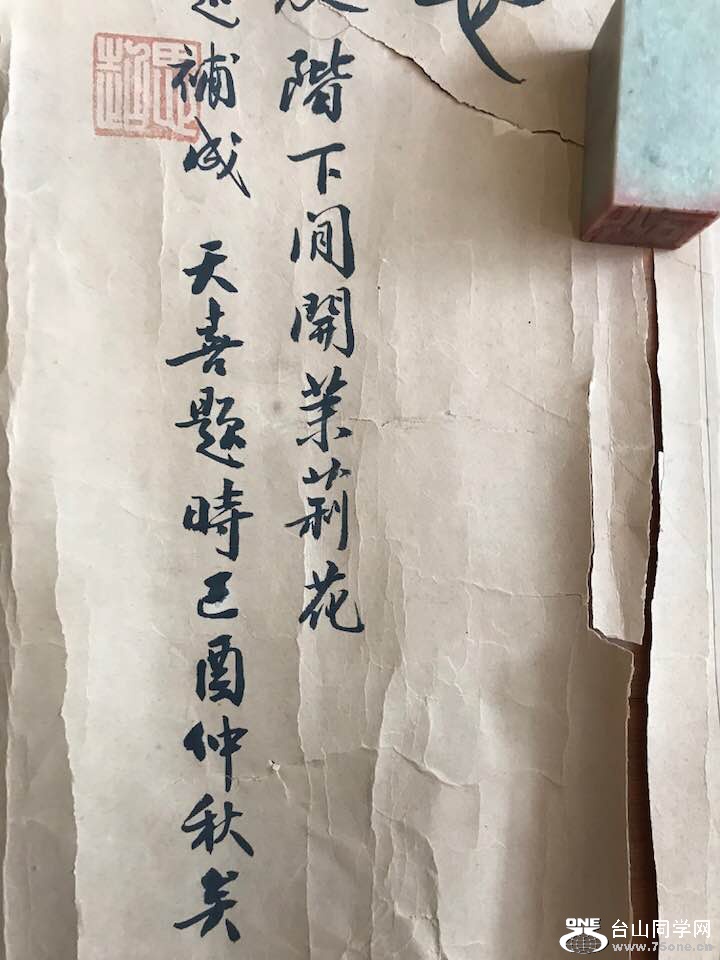 階下閒開茉莉花
補成 天喜題時己酉仲秋矣
ONE
台山同学网
www.75one.cn